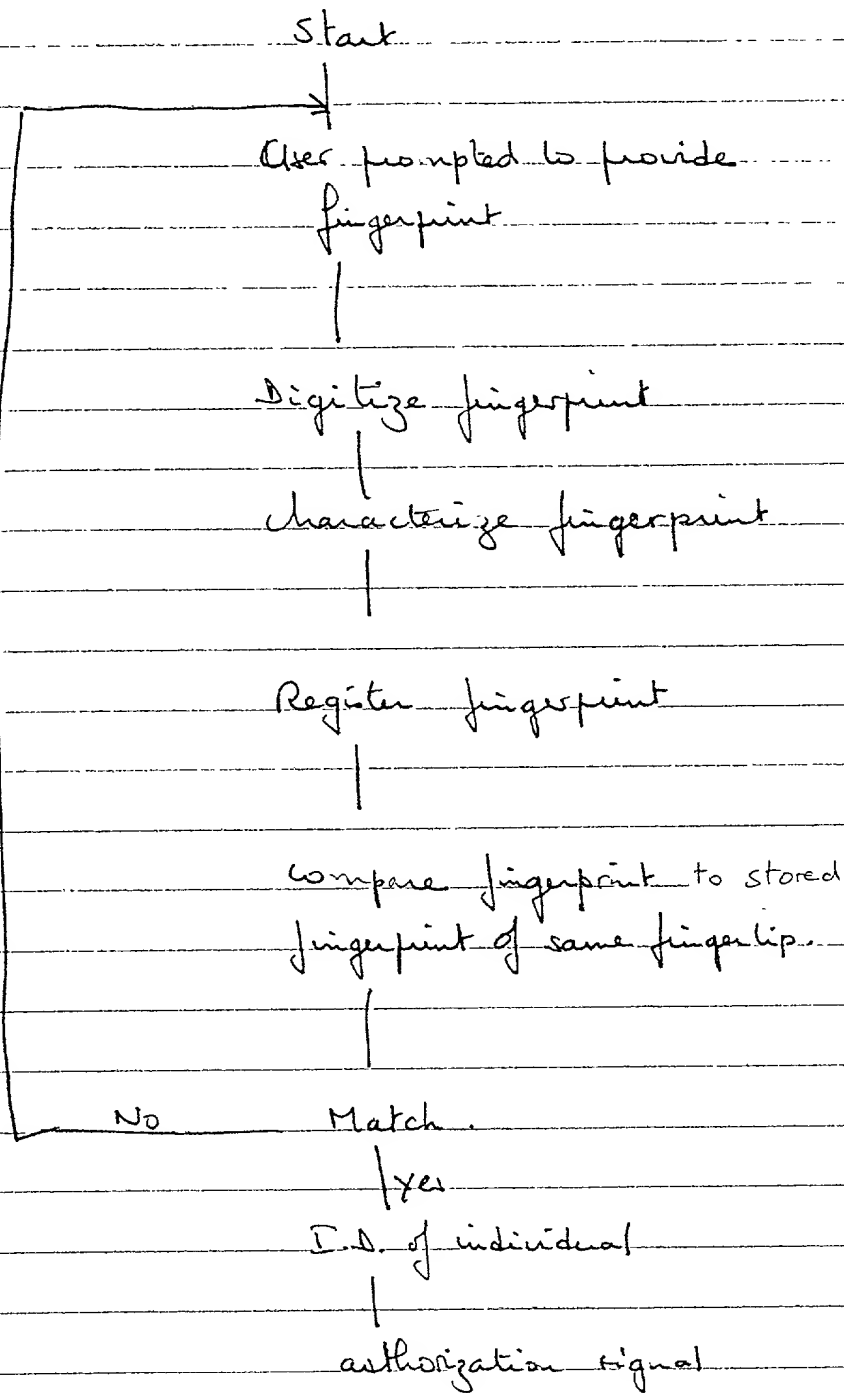 Start
User prompted to provide
fingerprint
Digitize fingerprint
characterize fingerprint
Register fingerprint
compare fingerprint to stored
fingerprint of same fingertip.
No Match.
Yes
I.D. of individual
authorization signal